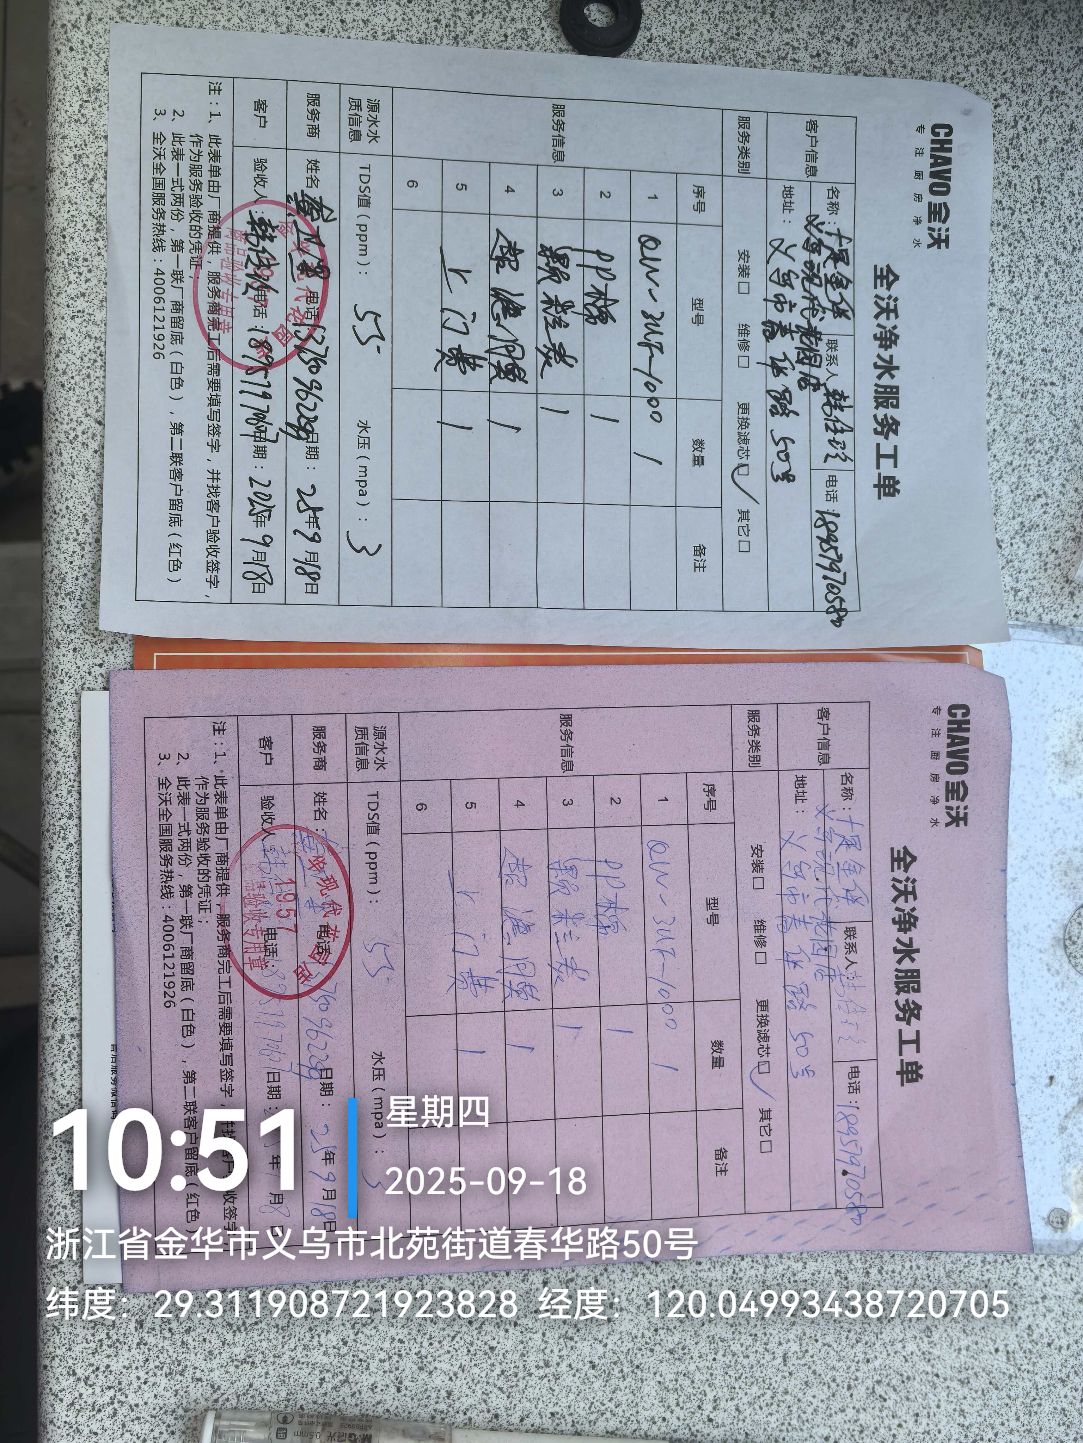 CHAVO全沃
专注厨房净水
全沃净水服务工单
客户信息
名称：大厦金保
义乌现代花园店
联系人 韩佳玲
电话：18957970580
地址：义乌市春华路50号
服务类别
安装□ 维修□ 更换滤芯☑ 其它□
服务信息
序号 型号 数量 备注
1 QW-3UF-1000 1
2 PP棉 1
3 颗粒炭 1
4 超滤膜 1
5 上门费 1
6
源水水质信息
TDS值（ppm）： 55 水压（mpa）：3
服务商 姓名 电话 日期：25年9月18日
客户 验收人 电话： 日期：2025年9月18日
注：1、此表单由厂商提供，服务商完工后需要填写签字，并找客户验收签字，
作为服务验收的凭证；
2、此表一式两份，第一联厂商留底（白色），第二联客户留底（红色）
3、全沃全国服务热线：4006121926
CHAVO全沃
专注厨房净水
全沃净水服务工单
客户信息
名称：大厦金保
义乌现代花园店
联系人
电话：18957970580
地址：义乌市春华路50号
服务类别
安装□ 维修□ 更换滤芯☑ 其它□
服务信息
序号 型号 数量 备注
1 QW-3UF-1000 1
2 PP棉 1
3 颗粒炭 1
4 超滤膜 1
5 上门费 1
6
源水水质信息
TDS值（ppm）： 55 水压（mpa）：
服务商 姓名： 电话 日期：25年9月18日
客户 验收人 电话： 日期： 年 月18日
1957
验收专用章
注：1、此表单由厂商提供，服务商完工后需要填写签字，
作为服务验收的凭证；
2、此表一式两份，第一联厂商留底（白色），第二联客户留底（红色）
3、全沃全国服务热线：4006121926
10:51
星期四
2025-09-18
浙江省金华市义乌市北苑街道春华路50号
纬度：29.311908721923828 经度：120.04993438720705